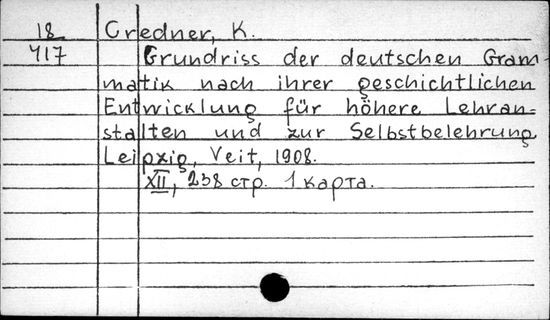 18
417
Credner, K.
Grundriss der deutschen Gram-
matik nach ihrer geschichtlichen
Entwicklung für höhere Lehran-
stalten und zur Selbstbelehrung
Leipzig, Veit, 1908.
XII, 238 стр. 1 карта.